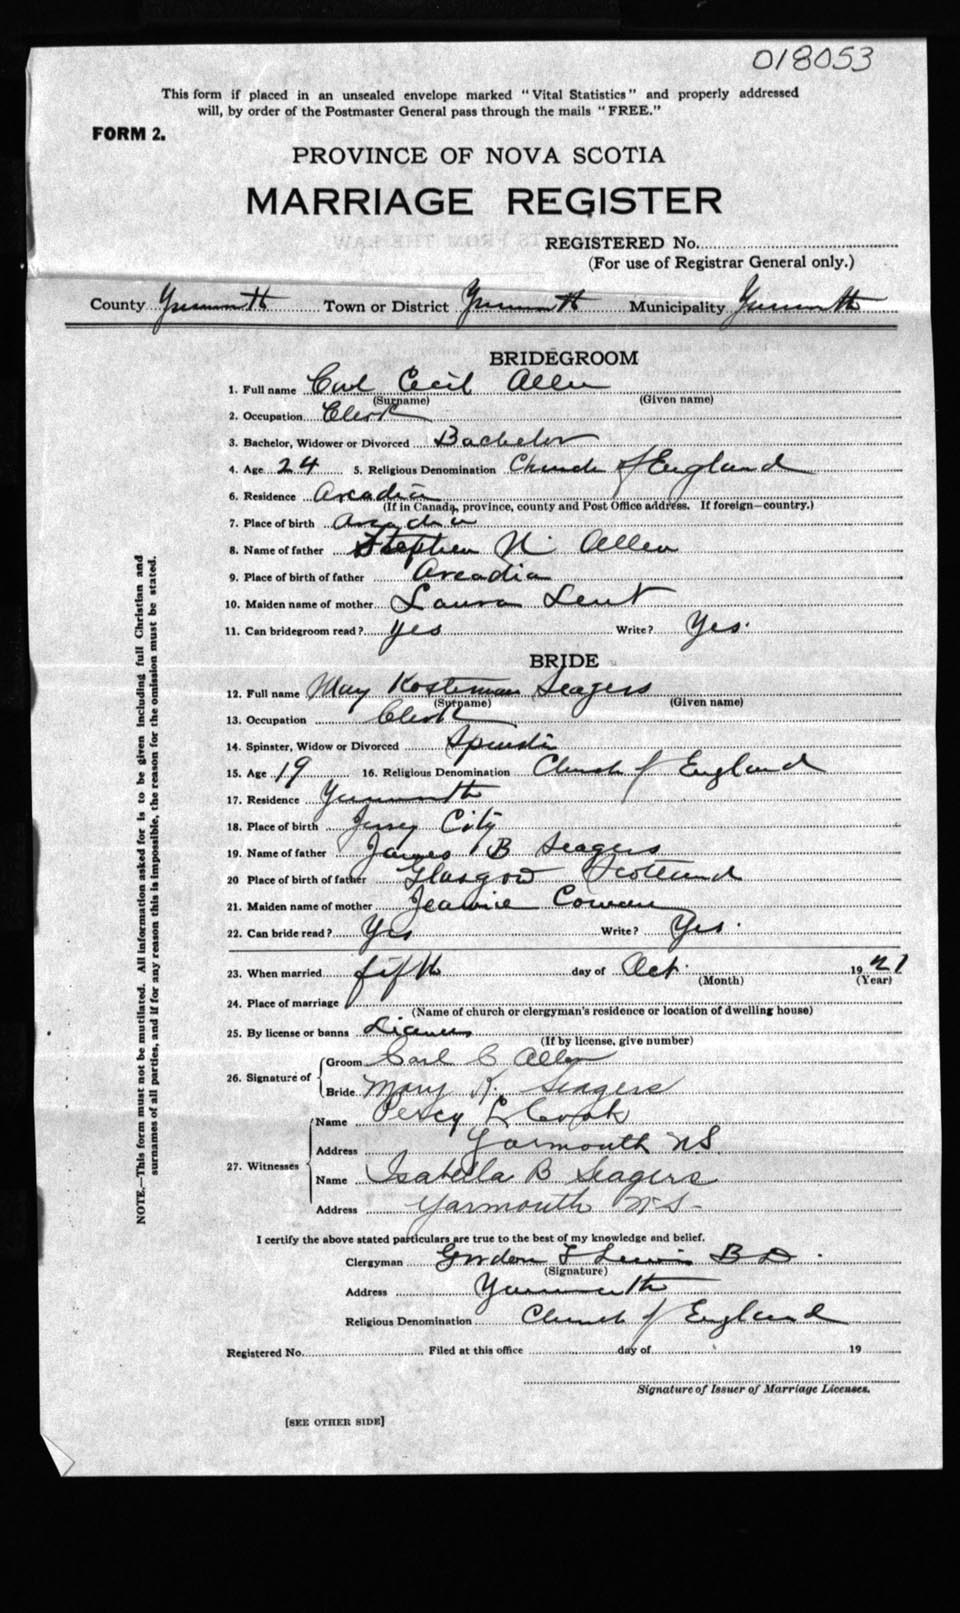 018053
This form if placed in an unsealed envelope marked "Vital Statistics" and properly addressed
will, by order of the Postmaster General pass through the mails "FREE."
FORM 2.
PROVINCE OF NOVA SCOTIA
MARRIAGE REGISTER
REGISTERED No.
(For use of Registrar General only.)
County Yarmouth Town or District Yarmouth Municipality Yarmouth
BRIDEGROOM
1. Full name Carl Cecil Allen
(Surname) (Given name)
2. Occupation Clerk
3. Bachelor, Widower or Divorced Bachelor
4. Age 24 5. Religious Denomination Church of England
6. Residence Arcadia
(If in Canada, province, county and Post Office address. If foreign—country.)
7. Place of birth Arcadia
8. Name of father Stephen N. Allen
9. Place of birth of father Arcadia
10. Maiden name of mother Laura Lent
11. Can bridegroom read? Yes Write? Yes.
BRIDE
12. Full name May Kosterman Seagers
(Surname) (Given name)
13. Occupation Clerk
14. Spinster, Widow or Divorced Spinster
15. Age 19 16. Religious Denomination Church of England
17. Residence Yarmouth
18. Place of birth Jersey City
19. Name of father James B Seagers
20 Place of birth of father Glasgow Scotland
21. Maiden name of mother Jeannie Cowan
22. Can bride read? Yes Write? Yes.
23. When married fifth day of Oct. 1921
(Month) (Year)
24. Place of marriage
(Name of church or clergyman's residence or location of dwelling house)
25. By license or banns License
(If by license, give number)
26. Signature of Groom Carl C Allen
Bride Mary K. Seagers
27. Witnesses Name Percy L Crook
Address Yarmouth N.S.
Name Isabella B Seagers
Address Yarmouth N.S.
I certify the above stated particulars are true to the best of my knowledge and belief.
Clergyman Gordon T Lewis B D.
(Signature)
Address Yarmouth
Religious Denomination Church of England
Registered No. Filed at this office day of 19
Signature of Issuer of Marriage Licenses.
[SEE OTHER SIDE]
NOTE.—This form must not be mutilated. All information asked for is to be given including full Christian and
surnames of all parties, and if for any reason this is impossible, the reason for the omission must be stated.